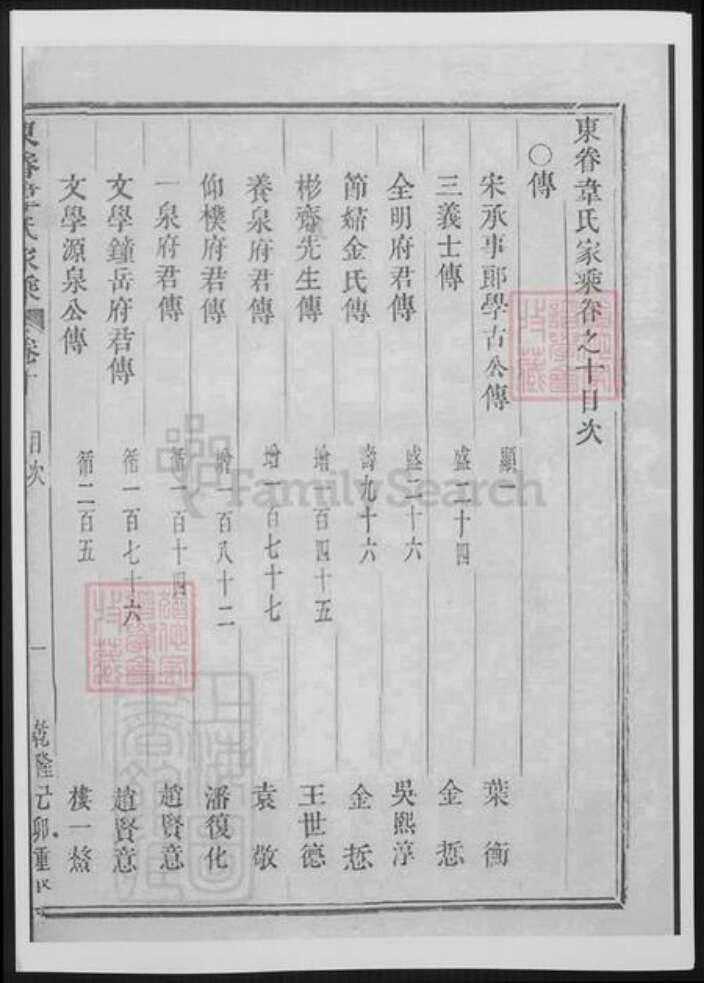 東眷韋氏家乘卷之十目次
○傳
宋承事郎學古公傳 顯一 葉衡
三義士傳 盛二十四 金悊
全明府君傳 盛二十六 吳熙淳
節婦金氏傳 壽九十六 金悊
彬齋先生傳 增一百四十五 王世德
養泉府君傳 增一百七十七 袁敬
仰樸府君傳 增一百八十二 潘復化
一泉府君傳 循一百十四 趙賢意
文學鐘岳府君傳 循一百七十六 趙賢意
文學源泉公傳 循二百五 樓一
東眷韋氏家乘 卷十 目次 一 乾隆己卯重
FamilySearch